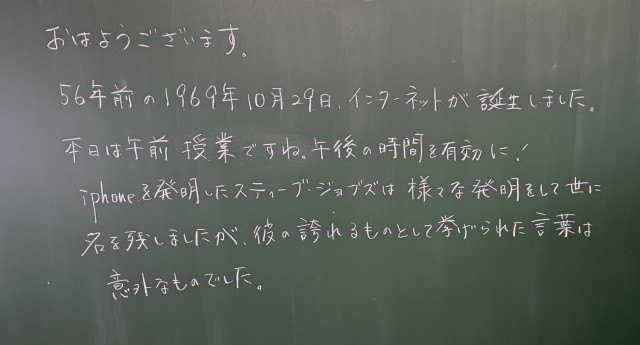 おはようございます。
56年前の1969年10月29日、インターネットが誕生しました。
本日は午前授業ですね。午後の時間を有効に！
iphoneを発明したスティーブ・ジョブズは様々な発明をして世に
名を残しましたが、彼の誇れるものとして挙げられた言葉は
意外なものでした。